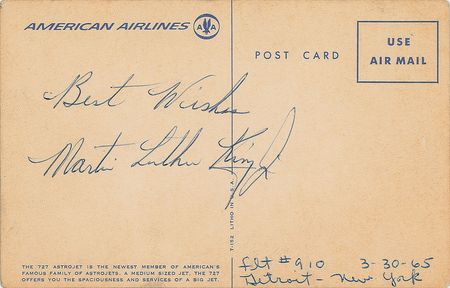 AMERICAN AIRLINES AA
POST CARD
USE
AIR MAIL
Best Wishes
Martin Luther King Jr
T-152 LITHO IN U.S.A.
THE 727 ASTROJET IS THE NEWEST MEMBER OF AMERICAN'S
FAMOUS FAMILY OF ASTROJETS. A MEDIUM SIZED JET, THE 727
OFFERS YOU THE SPACIOUSNESS AND SERVICES OF A BIG JET.
flt #910 3-30-65
Detroit - New York